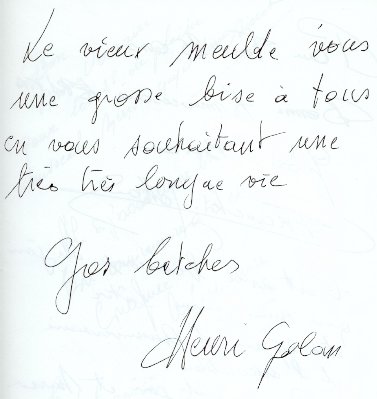 Le vieux meulde vous
une grosse bise à tous
en vous souhaitant une
très très longue vie
Gros betches
Henri Golan